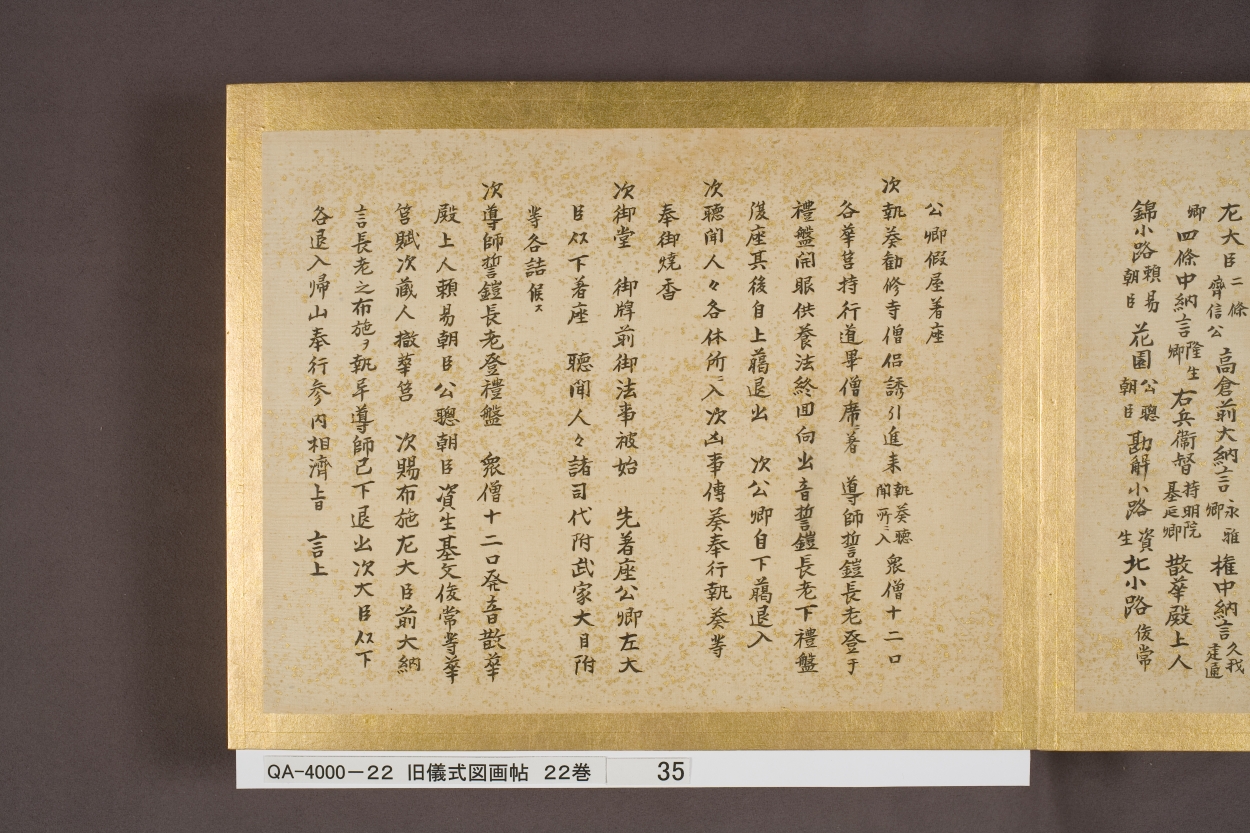 左大臣二條齊信公 高倉前大納言永雅卿 権中納言久我建通
卿 四條中納言隆生卿 右兵衛督持明院基延卿 散華殿上人
錦小路頼易朝臣 花園公聰朝臣 勘解小路資生 北小路俊常
公卿假屋着座
次執葵勧修寺僧侶誘引進来執葵聴聞所ニ入衆僧十二口
各華筥持行道畢僧席ニ着 導師誓鎧長老登于
禮盤開眼供養法終回向出音誓鎧長老下禮盤
復座其後自上﨟退出 次公卿自下﨟退入
次聴聞人々各休所ニ入次凶事傳葵奉行執葵等
奉御焼香
次御堂 御牌前御法事被始 先着座公卿左大
臣以下著座 聴聞人々諸司代附武家大目附
等各詰候ス
次導師誓鎧長老登禮盤 衆僧十二口発音散華
殿上人頼易朝臣公聰朝臣資生基文俊常等華
筥賦次蔵人撤華筥 次賜布施左大臣前大納
言長老之布施ヲ執早導師已下退出次大臣以下
各退入帰山奉行参内相濟旨 言上
QA-4000-22 旧儀式図画帖 22巻 35